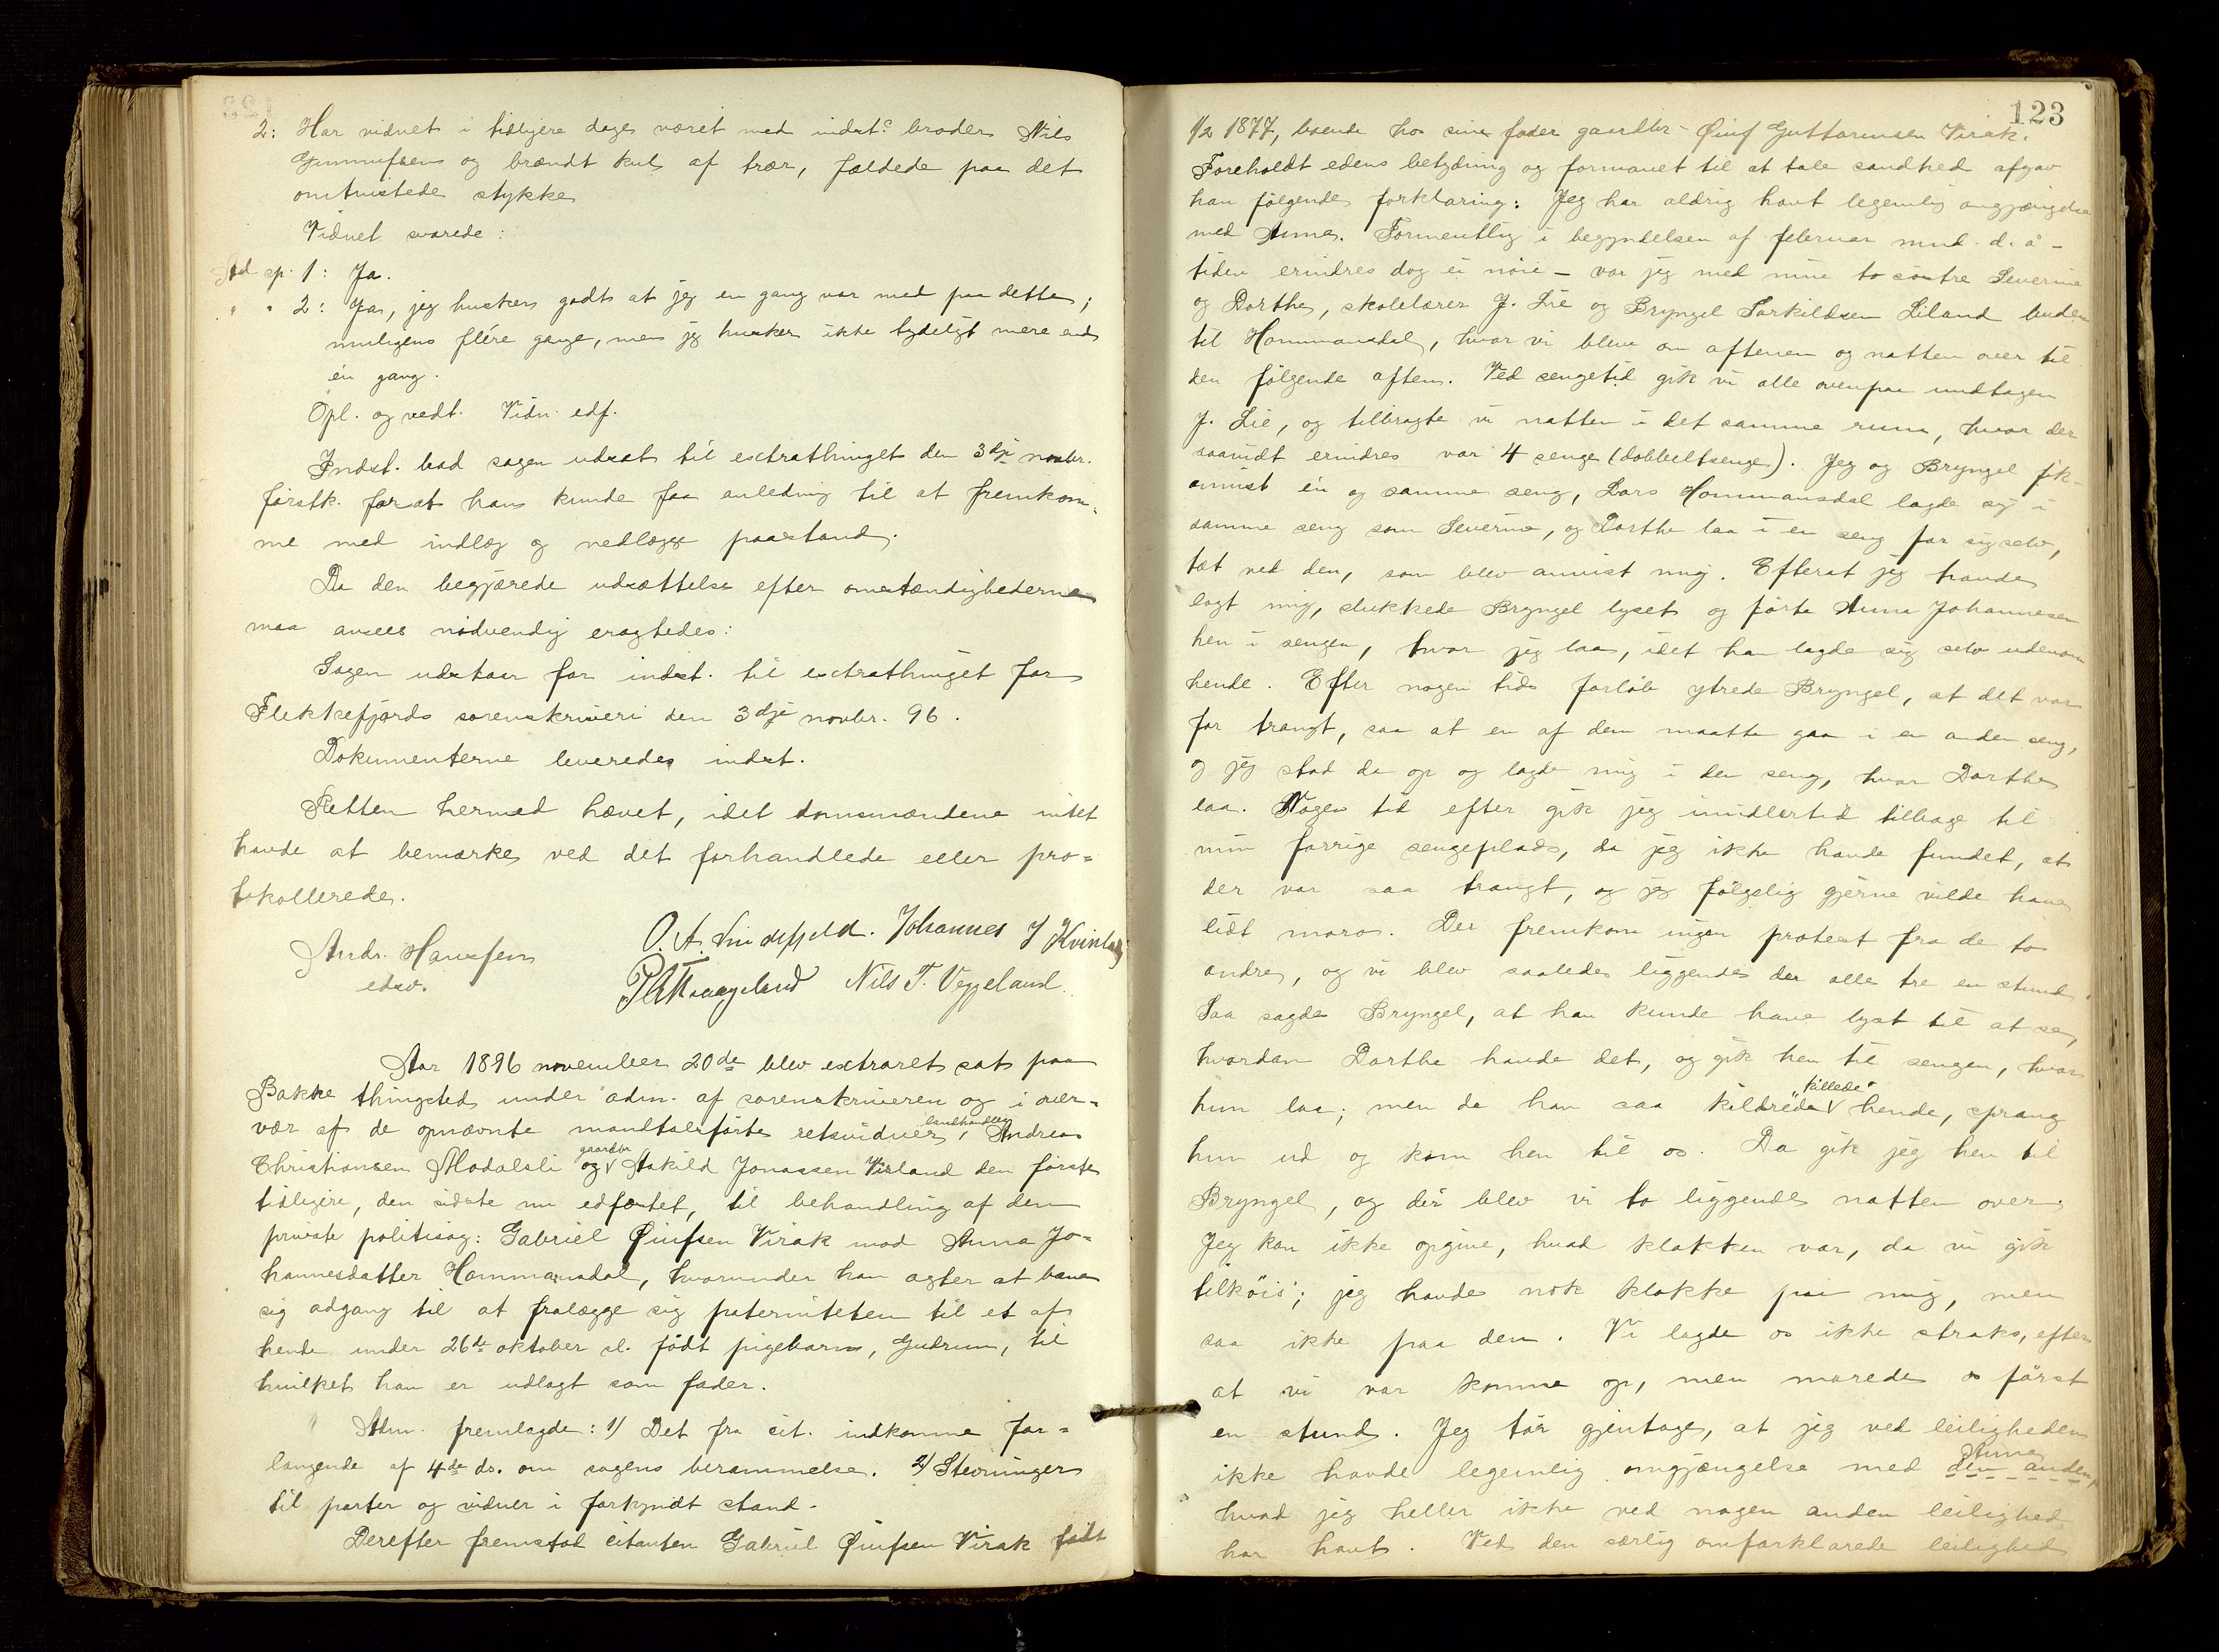 2: Har vidnet i tidligere dage været med indst.s broder Nils
Gunnufsen og brændt kul af trær, fældede paa det
omtvistede stykke
Vidnet svarede:
Ad sp. 1: Ja.
" " 2: Ja, jeg husker godt at jeg en gang var med paa dette;
muligens flére gange, men jeg husker ikke tydeligt mere end
én gang.
Opl. og vedt. Vidn. edf.
Indst. bad sagen udsat til extrathinget den 3dje novbr.
førstk. forat han kunde faa anledning til at fremkom-
me med indlæg og nedlægge paastand.
Da den begjærede udsættelse efter omstændighederne
maa ansees nødvendig eragtedes:
Sagen udstaar for indst. til extrathinget for
Flekkefjords sorenskriveri den 3dje novbr. 96.
Dokumenterne leveredes indst.
Retten hermed hævet, idet domsmændene intet
havde at bemærke ved det forhandlede eller pro=
tokollerede.
Andr. Hansen O. A. Johannes J Kvinlaug
edsv. Nils T. Veggeland.
Aar 1896 november 20de blev extraret sat paa
Bakke thingsted under adm. af sorenskriveren og i over=
vær af de opnævnte mandtalsførte retsvidner, landhandler Andreas
Christiansen Modalsli og gaardbr Askild Jonassen Virland den første
tidligere, den sidste nu edfæstet, til behandling af den
private politisag: Gabriel Øiufsen Virak mod Anna Jo=
hannesdatter Hammansdal, hvorunder han agter at bane
sig adgang til at fralægge sig paterniteten til et af
hende under 26de oktober sl. født pigebarn, Gudrun, til
hvilket han er udlagt som fader.
Adm. fremlagde: 1) Det fra cit. indkomne for=
langende af 4de ds. om sagens berammelse. 2) Stevninger
til parter og vidner i forkyndt stand.
Derefter fremstod citanten Gabriel Øiufsen Virak født
123
1/2 1877, boende hos sin fader gaardbr Øiuf Guttormsen Virak.
Foreholdt edens betydning og formanet til at tale sandhed afgav
han følgende forklaring: Jeg har aldrig havt legemlig omgjængelse
med Anna. Formentlig i begyndelsen af februar mnd. d. å -
tiden erindres dog ei nöie - var jeg med mine to söstre Severine
og Dorthe, skolelærer J. Lie og Bryngel Torkildsen Liland buden
til Hammansdal, hvor vi blev om aftenen og natten over til
den følgende aften. Ved sengetid gik vi alle ovenpaa undtagen
J. Lie, og tilbragte vi natten i det samme rum, hvor der
saavidt erindres var 4 senge (dobbeltsenge). Jeg og Bryngel fik
anvist én og samme seng, Lars Hommansdal lagde sig i
samme seng som Severine, og Dorthe laa i en seng for sig selv,
tæt ved den, som blev anvist mig. Efterat jeg havde
lagt mig, slukkede Bryngel lyset og førte Anna Johannesen
hen i sengen, hvor jeg laa, idet han lagde sig selv udenom
hende. Efter nogen tids forløb ytrede Bryngel, at det var
for trangt, saa at en af dem maatte gaa i en anden seng,
og jeg stod da op og lagde mig i den seng, hvor Dorthe
laa. Nogen tid efter gik jeg imidlertid tilbage til
min forrige sengeplads, da jeg ikke havde fundet, at
der var saa trangt, og jeg følgelig gjerne vilde have
lidt moro. Der fremkom ingen protest fra de to
andre, og vi blev saaledes liggende der alle tre en stund.
Saa sagde Bryngel, at han kunde have lyst til at se,
hvordan Dorthe havde det, og gik hen til sengen, hvor
hun laa; men da han saa kildrede "killede" hende, sprang
hun ud og kom hen til os. Da gik jeg hen til
Bryngel, og der blev vi to liggende natten over.
Jeg kan ikke opgive, hvad klokken var, da vi gik
tilköis; jeg havde nok klokke paa mig, men
saa ikke paa den. Vi lagde os ikke straks, efter
at vi var komne op, men morede os først
en stund. Jeg tör gjentage, at jeg ved leiligheden
ikke havde legemlig omgjængelse med den anden, Anna
hvad jeg heller ikke ved nogen anden leilighed
har havt. Ved den særlig omforklarede leilighed